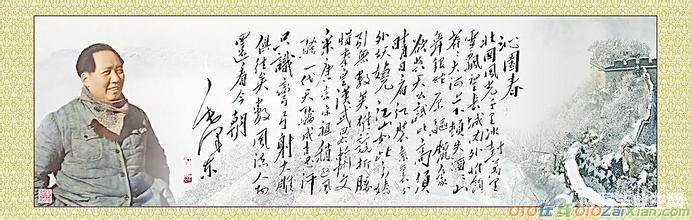 沁园春
北国风光千里冰封万里
雪飘望长城内外惟余
莽莽大河上下顿失滔滔山
舞银蛇原驱腊象
欲与天公试比高须
晴日看红装素裹分
外妖娆江山如此多娇
引无数英雄竞折腰
惜秦皇汉武略输文
采唐宗宋祖稍逊风
骚一代天骄成吉思汗
只识弯弓射大雕
俱往矣数风流人物
还看今朝
毛泽东
OIO在线 OIOZaiXian.com